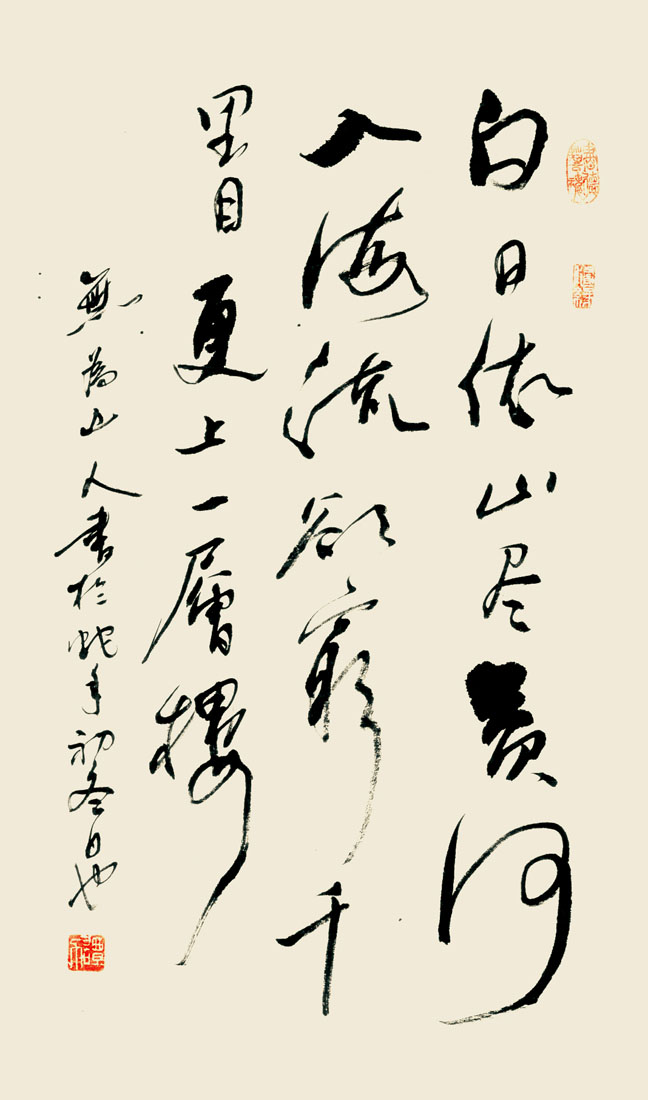 白日依山尽黄河
入海流欲穷千
里目更上一層楼
無為山人書於蛇年初冬日也